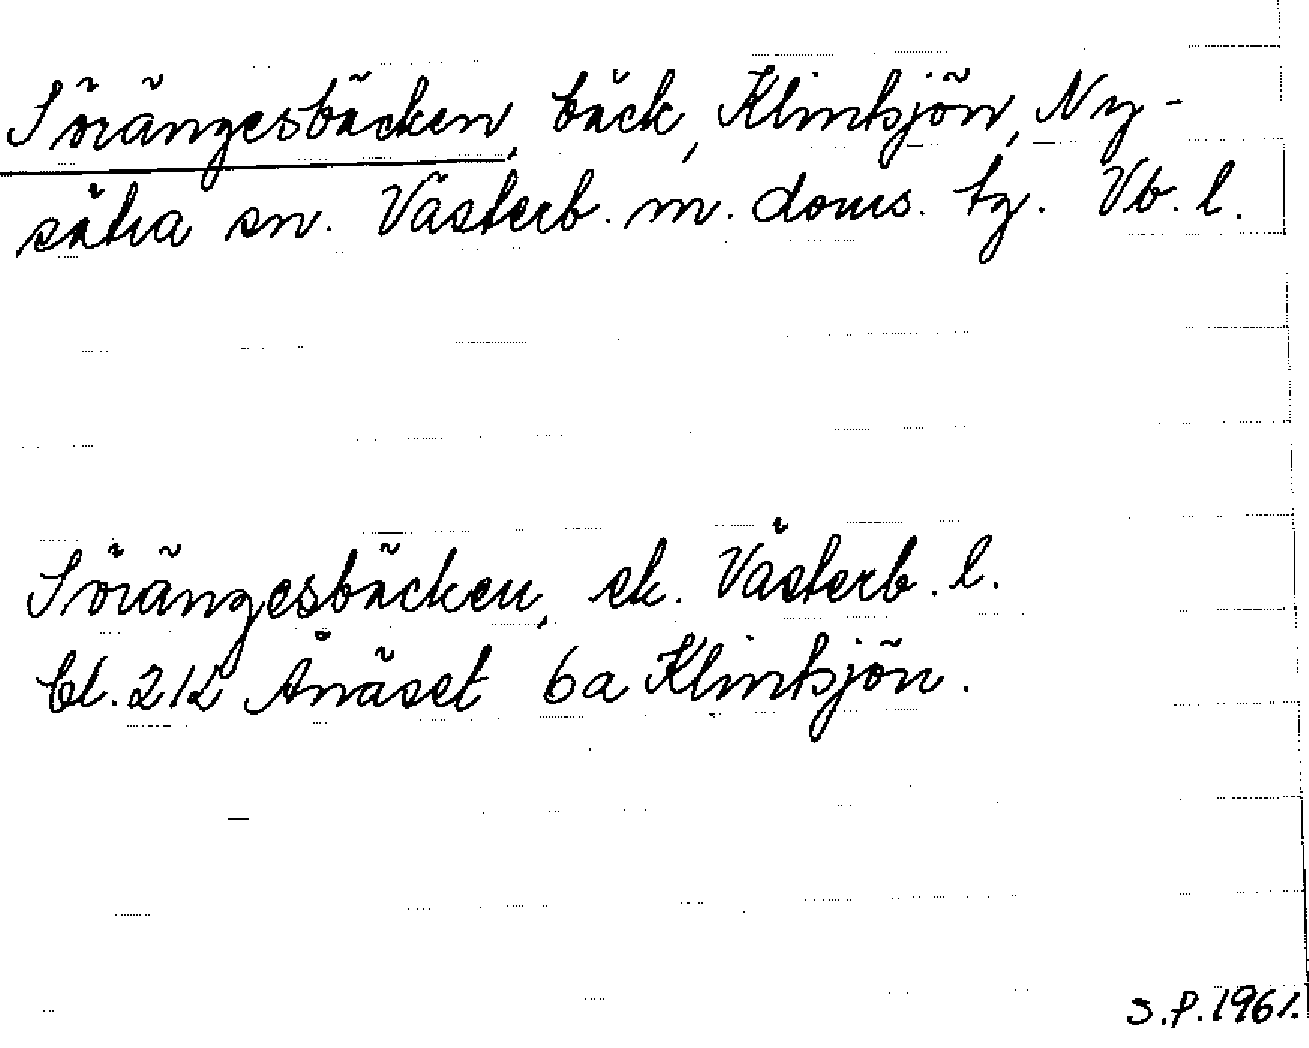 Sörängesbäcken, bäck, Klintsjön, Ny-
sätra sn. Västerb. m. doms. tg. Vb. l.
Sörängesbäcken, ek. Västerb. l.
bl. 212 Ånäset 6a Klintsjön.
S.P. 1961.